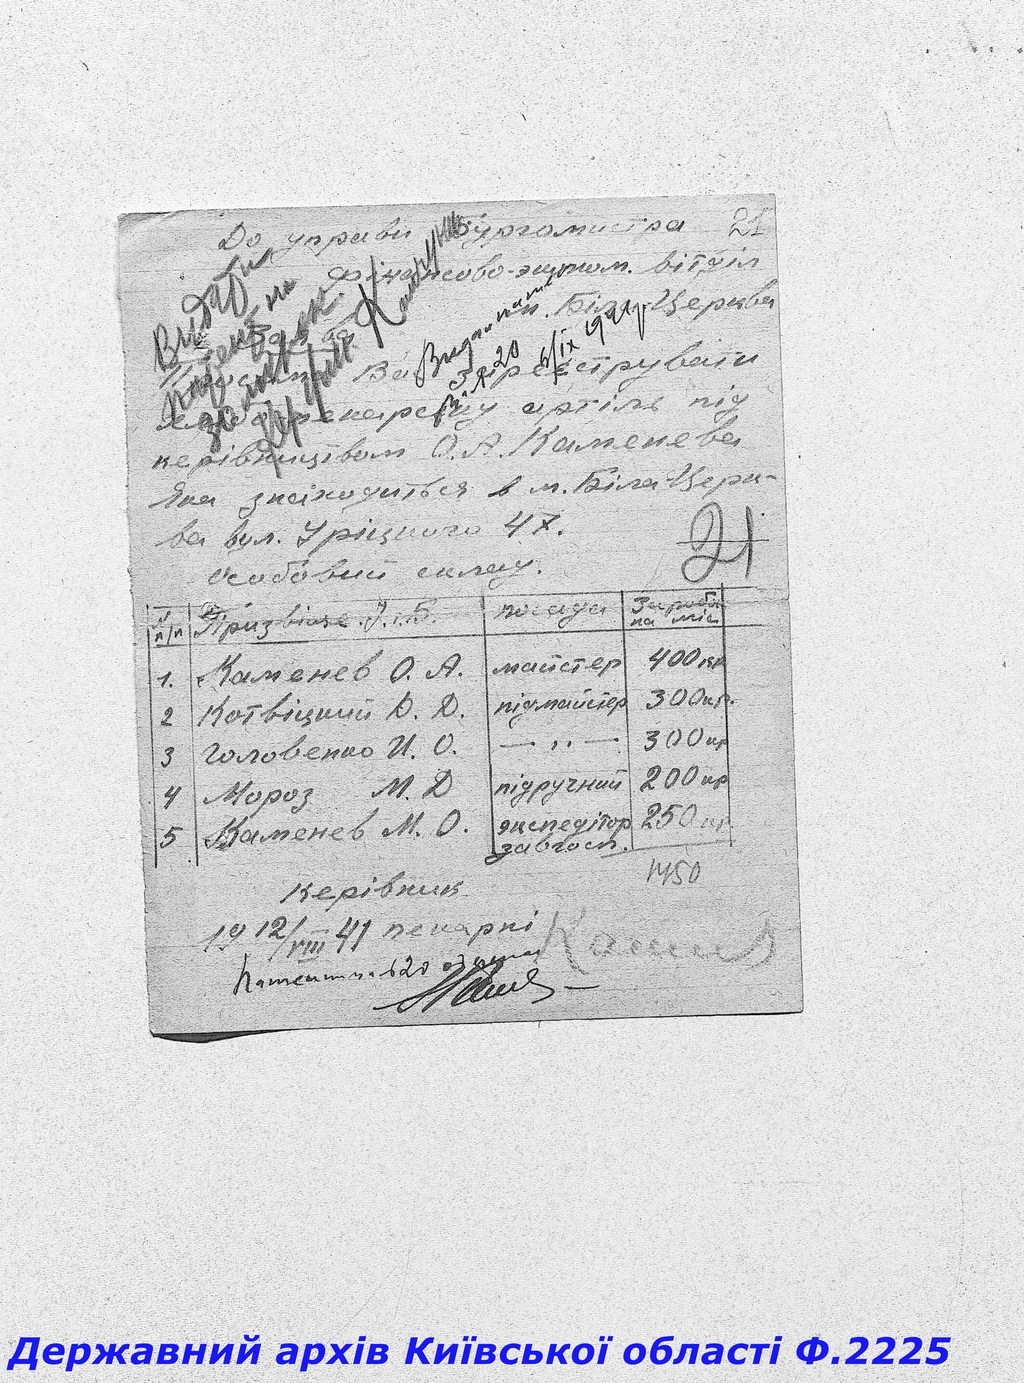 До управи Бургомистра 21
Фінансово-эконом. вітділ
м. Біла-Церква
Видати
патент на
Видан патент
за № 20 6/IX 1941 р
Вас зареєструвати
артіль під
керівництвом О. А. Каменева
Яка знаходиться в м. Біла Церк-
ва вул. Уріцького 47.
особовий склад.
21
N п/п Призвіще. І. і. Б. посада Заробіт. на міс
1. Каменев О. А. майстер 400 кр
2 Котвіцкий Д. Д. підмайстер 300 кр.
3 Головенко И. О. — „ — 300 кр
4 Мороз М. Д підручний 200 кр
5 Каменев М. О. экспедітор завгосп. 250 кр
1450
Керівник
19 12/VIII 41 пекарні
Патент № 20
Державний архів Київської області Ф.2225